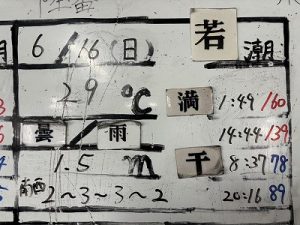 6/16(日) 若潮
29℃ 満 1:49/160
雲/雨 14:44/139
1.5m 干 8:37 78
南西 2～3～3～2 20:16 89